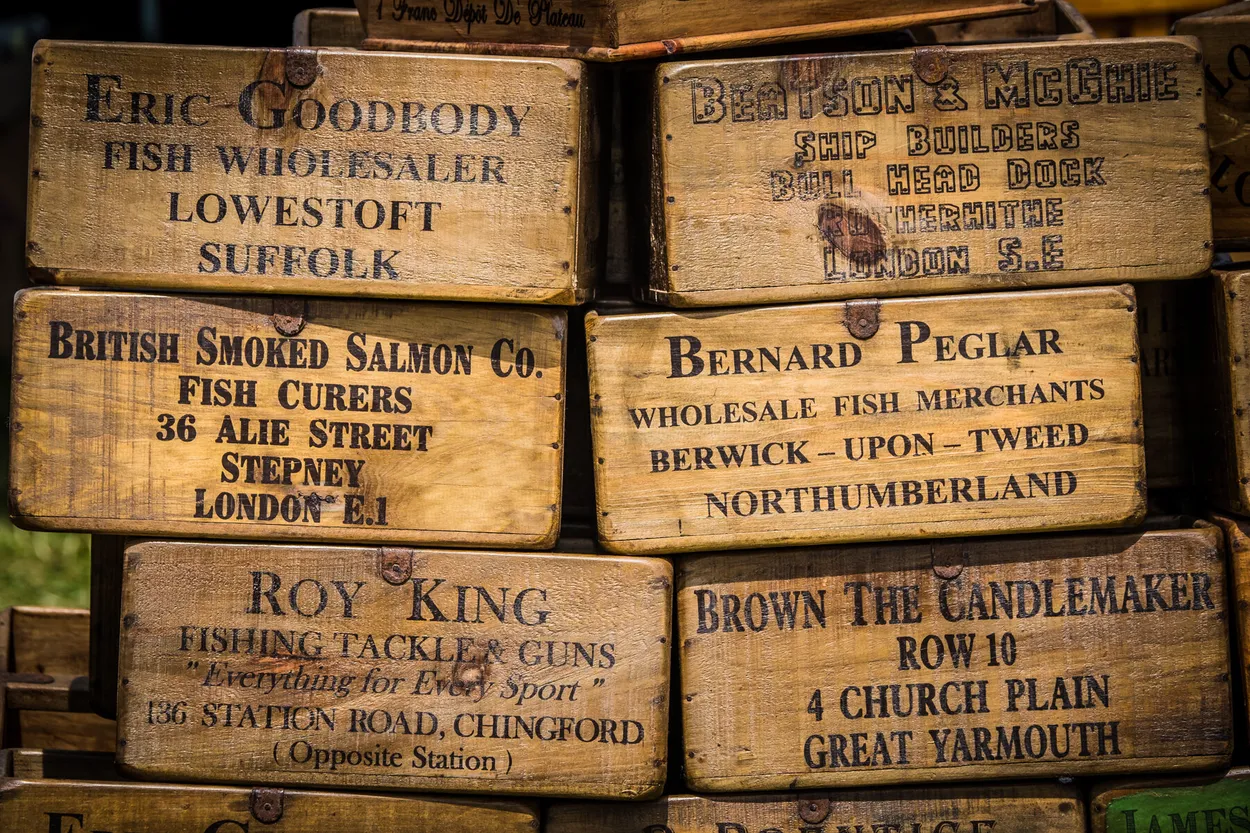 1 Franc Dépôt De Plateau
ERIC GOODBODY
FISH WHOLESALER
LOWESTOFT
SUFFOLK
BEATSON & MCGHIE
SHIP BUILDERS
BULL HEAD DOCK
ROTHERHITHE
LONDON S.E
BRITISH SMOKED SALMON CO.
FISH CURERS
36 ALIE STREET
STEPNEY
LONDON E.1
BERNARD PEGLAR
WHOLESALE FISH MERCHANTS
BERWICK – UPON – TWEED
NORTHUMBERLAND
ROY KING
FISHING TACKLE & GUNS
" Everything for Every Sport "
136 STATION ROAD, CHINGFORD
( Opposite Station )
BROWN THE CANDLEMAKER
ROW 10
4 CHURCH PLAIN
GREAT YARMOUTH
JAMES